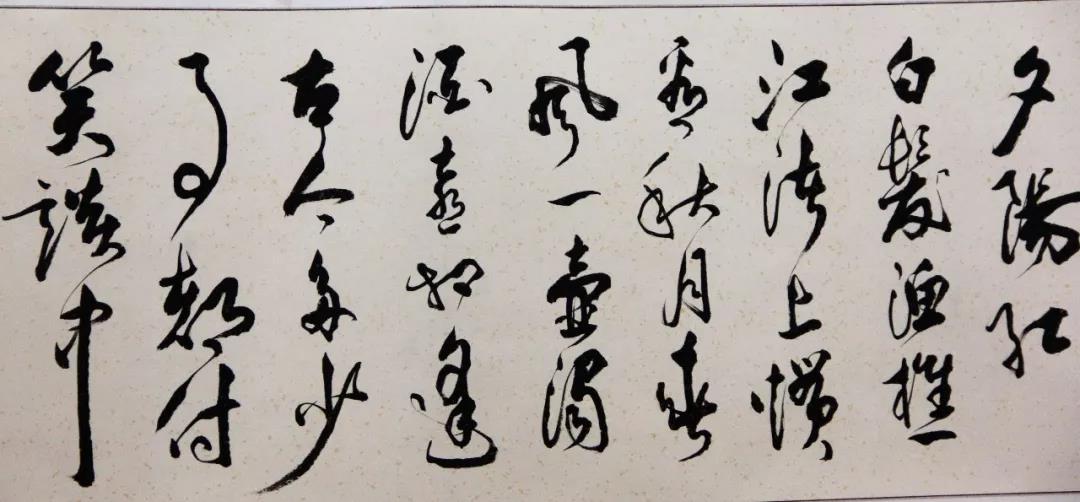 夕陽紅
白髮漁樵
江渚上慣
看秋月春
風一壺濁
酒喜相逢
古今多少
事都付
笑談中